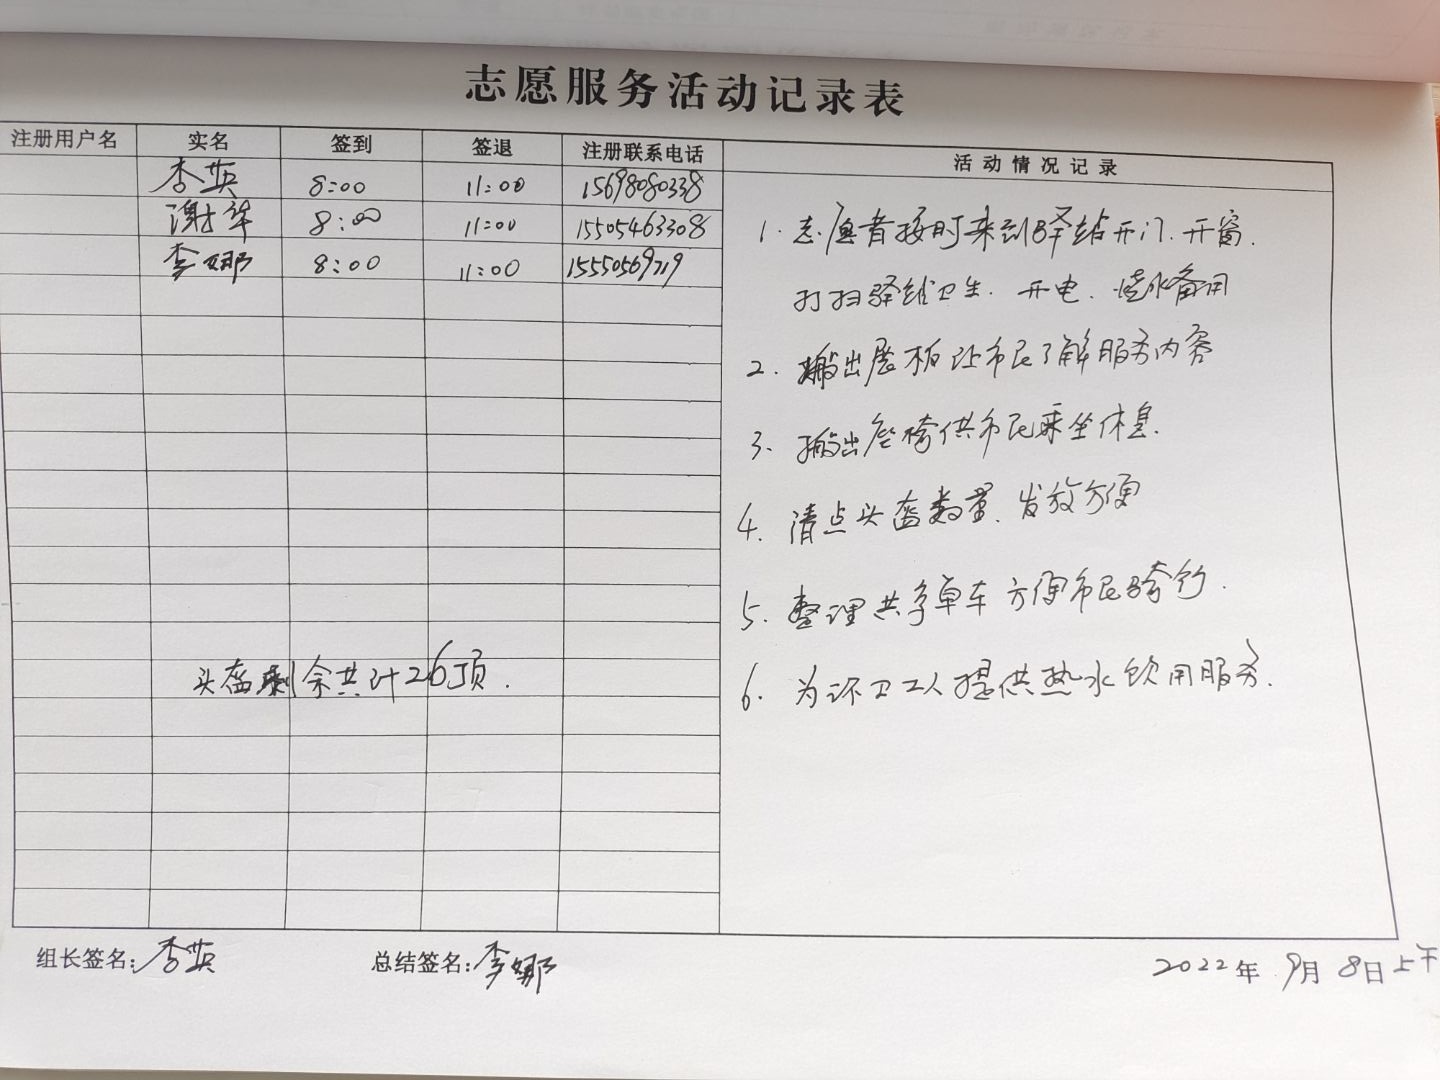 志愿服务活动记录表
注册用户名 实名 签到 签退 注册联系电话 活动情况记录
李英 8:00 11:00 15698080338
谢华 8:00 11:00 15505463308
李娜 8:00 11:00 15550569719
1. 志愿者按时来到驿站开门、开窗.
打扫驿站卫生. 开电、烧水备用
2. 搬出展板让市民了解服务内容
3. 搬出座椅供市民乘坐休息.
4. 清点头盔数量、发放方便
5. 整理共享单车方便市民骑行.
6. 为环卫工人提供热水饮用服务.
头盔剩余共计26顶.
组长签名:李英 总结签名:李娜 2022年9月8日上午